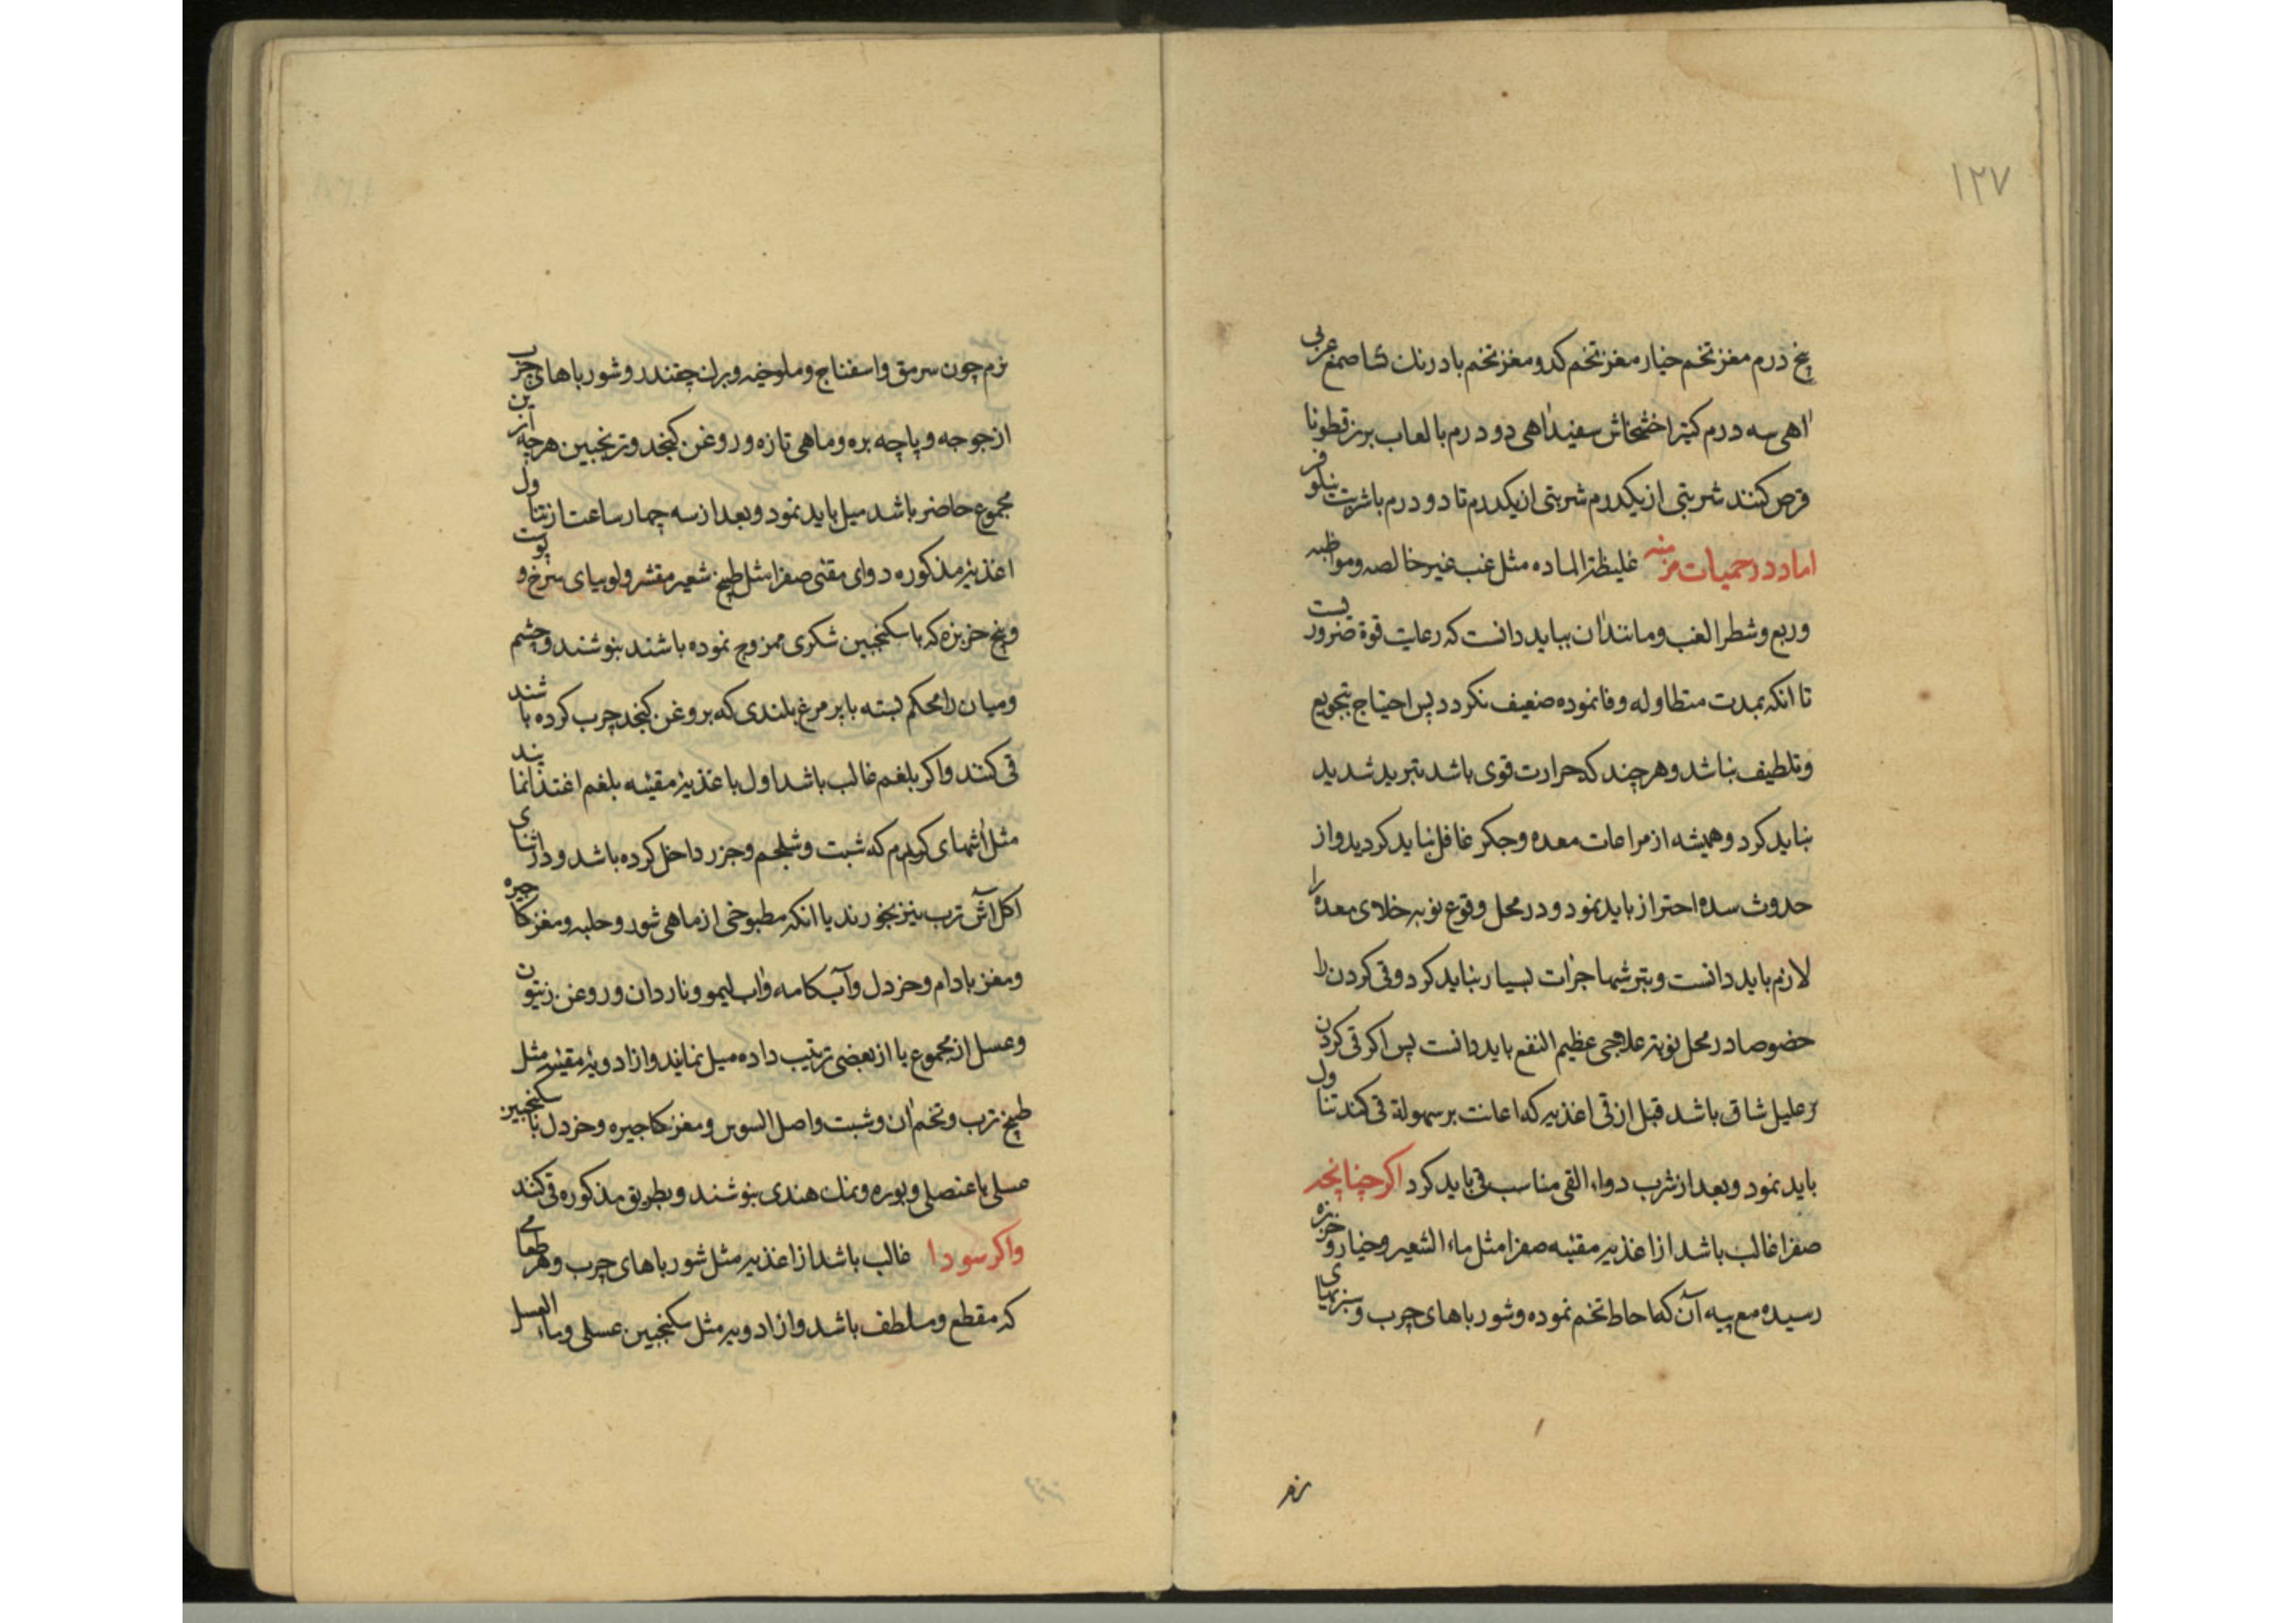 ۱۲۷
پنج درم مغز تخم خیار مغز تخم کدو مغز تخم بادرنك نشا صمغ عربی
اهی سه درم کتیرا خشخاش سفید اهی دو درم با لعاب بزر قطونا
قرص کنند شربتی از یکدرم شربتی از یکدرم تا دو درم با شربت نیلوفر
اما در حمیات مزمنه غلیظة الماده مثل غب غیر خالصه و مواظبه
و ربع و شطر الغب و مانند ان بباید دانست که رعایت قوة ضروریست
تا انکه بمدت متطاوله وفا نموده ضعیف نکردد پس احتیاج بتجویع
و تلطیف نباشد و هر چند که حرارت قوی باشد تبرید شدید
نباید کرد و همیشه از مراعات معده و جکر غافل نباید کردید و از
حدوث سده احتراز باید نمود و در محل وقوع نوبه خلای معده را
لازم باید دانست و بترشیها جرات بسیار نباید کرد و قی کردن را
خصوصا در محل نوبة علاجی عظیم النفع باید دانست پس اکر قی کردن
بر علیل شاق باشد قبل از قی اغذیه که اعانت بر سهولة قی کند تناول
باید نمود و بعد از شرب دواء القی مناسب قی باید کرد اکر چنانچه
صفرا غالب باشد از اغذیه مقیئه صفرا مثل ماء الشعیر و خیار و خربزه
رسیده مع پیه آن که احاطه تخم نموده و شورباهای چرب و سبزیهای
نرم
نرم چون سرمق و اسفناج و ملوخیه و برك چقندر و شورباهای چرب
از جوجه و پاچه بره و ماهی تازه و روغن کنجد و ترنجبین هر چه از ین
مجموع حاضر باشد میل باید نمود و بعد از سه چهار ساعت از تناول
اغذیه مذکوره دوای مقئی صفرا مثل طبیخ شعیر مقشر و لوبیای سرخ و پوست
و بیخ خربزه که با سکنجبین شکری ممزوج نموده باشند بنوشند و چشم
و میان را محکم بسته با پر مرغ بلندی که بروغن کنجد چرب کرده باشند
قی کنند و اکر بلغم غالب باشد اول باغذیه مقیئه بلغم اغتذا نمایند
مثل اشهای کرم که شبت و شلجم و جزر داخل کرده باشد و در اثنای
اکل آش ترب نیز بخورند یا انکه مطبوخی از ماهی شور و حلبه و مغز کاجیره
و مغز بادام و خردل و آبکامه و اب لیمو و ناردان و روغن زیتون
و عسل از مجموع یا از بعضی ترتیب داده میل نمایند و از ادویه مقیئه مثل
طبیخ ترب و تخم ان و شبت و اصل السوس و مغز کاجیره و خردل با سکنجبین
عسلی یا عنصلی و بوره و نمك هندی بنوشند و بطریق مذکوره قی کنند
و اکر سودا غالب باشد از اغذیه مثل شورباهای چرب و هر طعامی
که مقطع و ملطف باشد و از ادویه مثل سکنجبین عسلی و ماء العسل